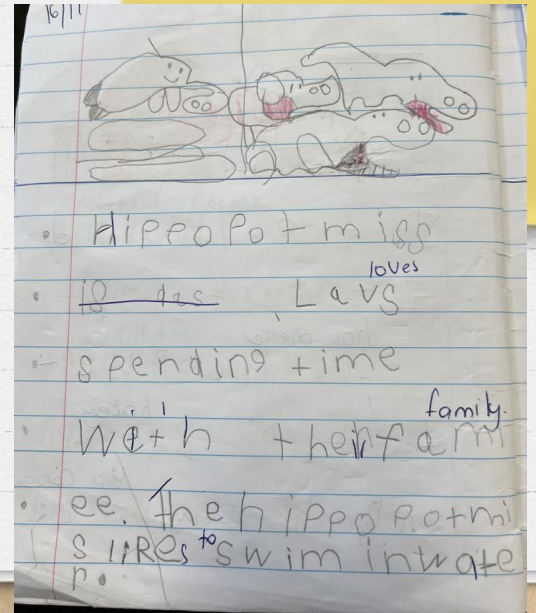 16/11
Hippopotmiss
is ars Lavs loves
spending time
with their famm family.
ee. The hippopotmi
s likes to swim in wate
r.